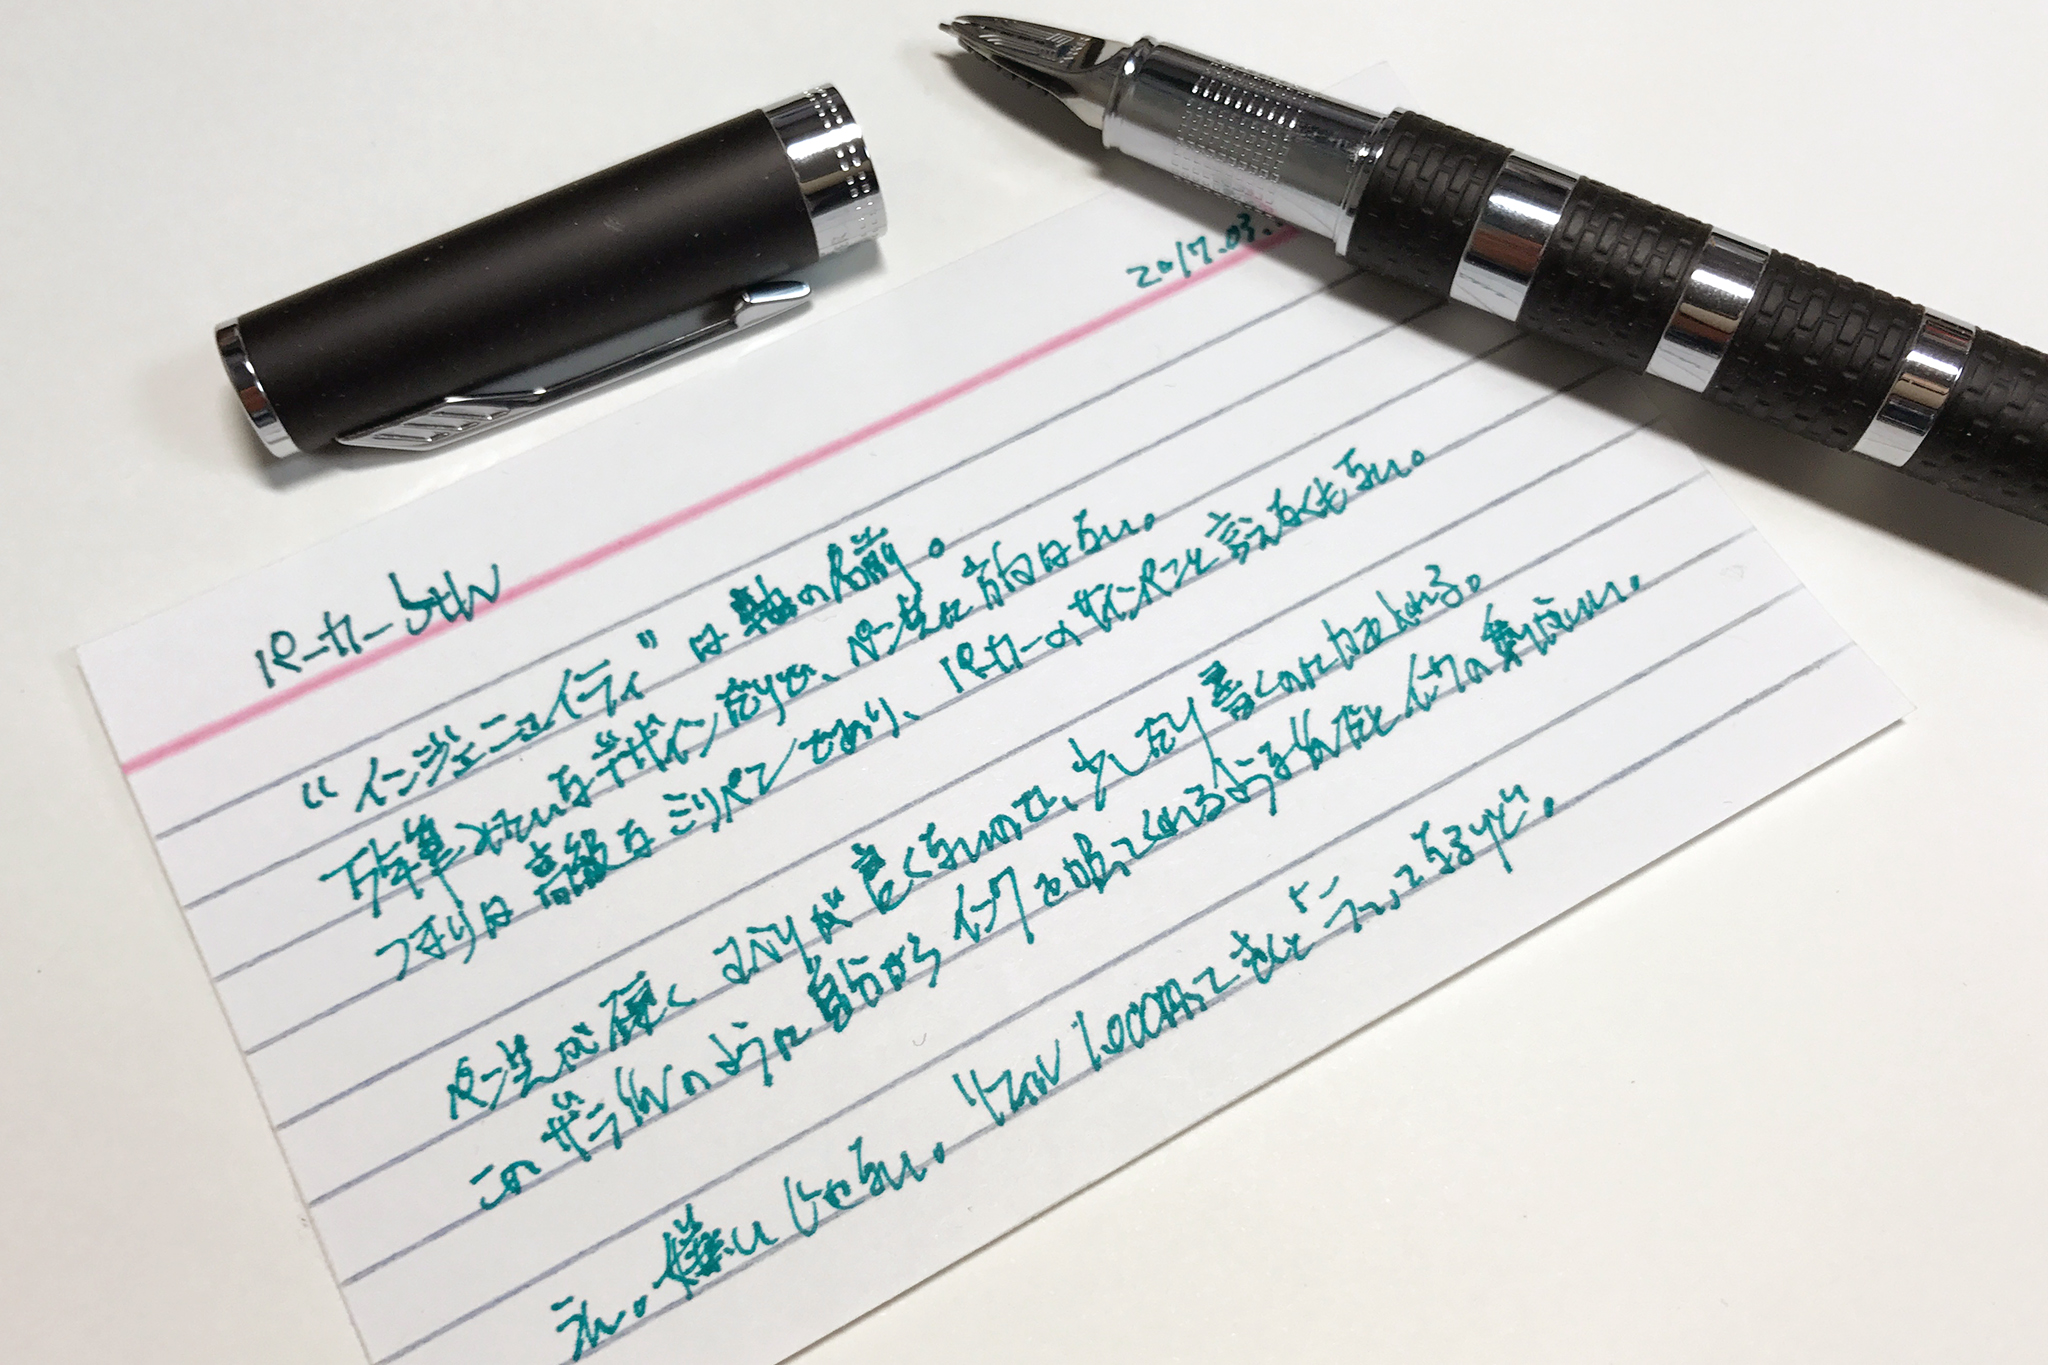 2017.03.
パーカー 5th
“インジェニュイティ” は軸の名前。
万年筆みたいなデザインだけど、ペン先に方向はない。
つまりは高級なミリペンであり、パーカーのサインペンと言えなくもない。
ペン先が硬く すべりが良くないので、少しだけ書くのに力をとられる。
このザラ紙のように自分から インクを吸ってくれるような紙だと インクの乗りはいい。
うん。嫌いじゃない。リフィル 1,000円って きくと “うっ” ってなるけど。